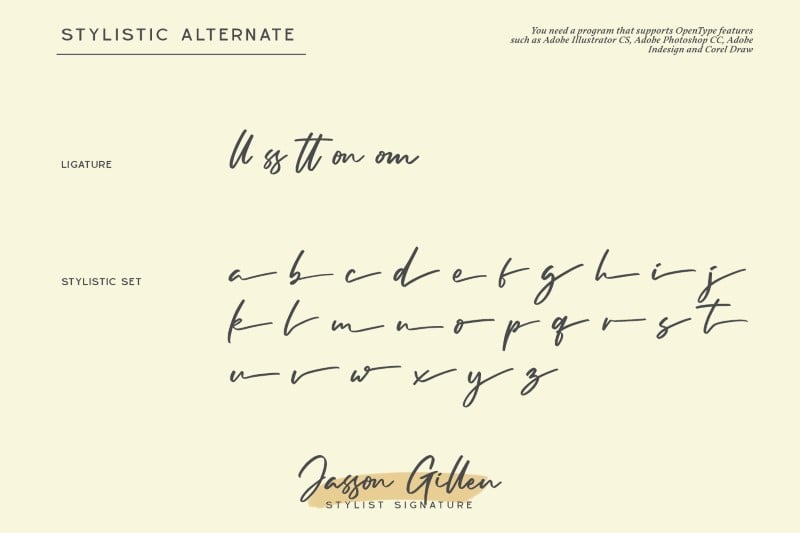 STYLISTIC ALTERNATE
You need a program that supports OpenType features
such as Adobe Illustrator CS, Adobe Photoshop CC, Adobe
Indesign and Corel Draw
LIGATURE
ll ss tt on om
STYLISTIC SET
a b c d e f g h i j
k l m n o p q r s t
u v w x y z
Jasson Gillen
STYLIST SIGNATURE